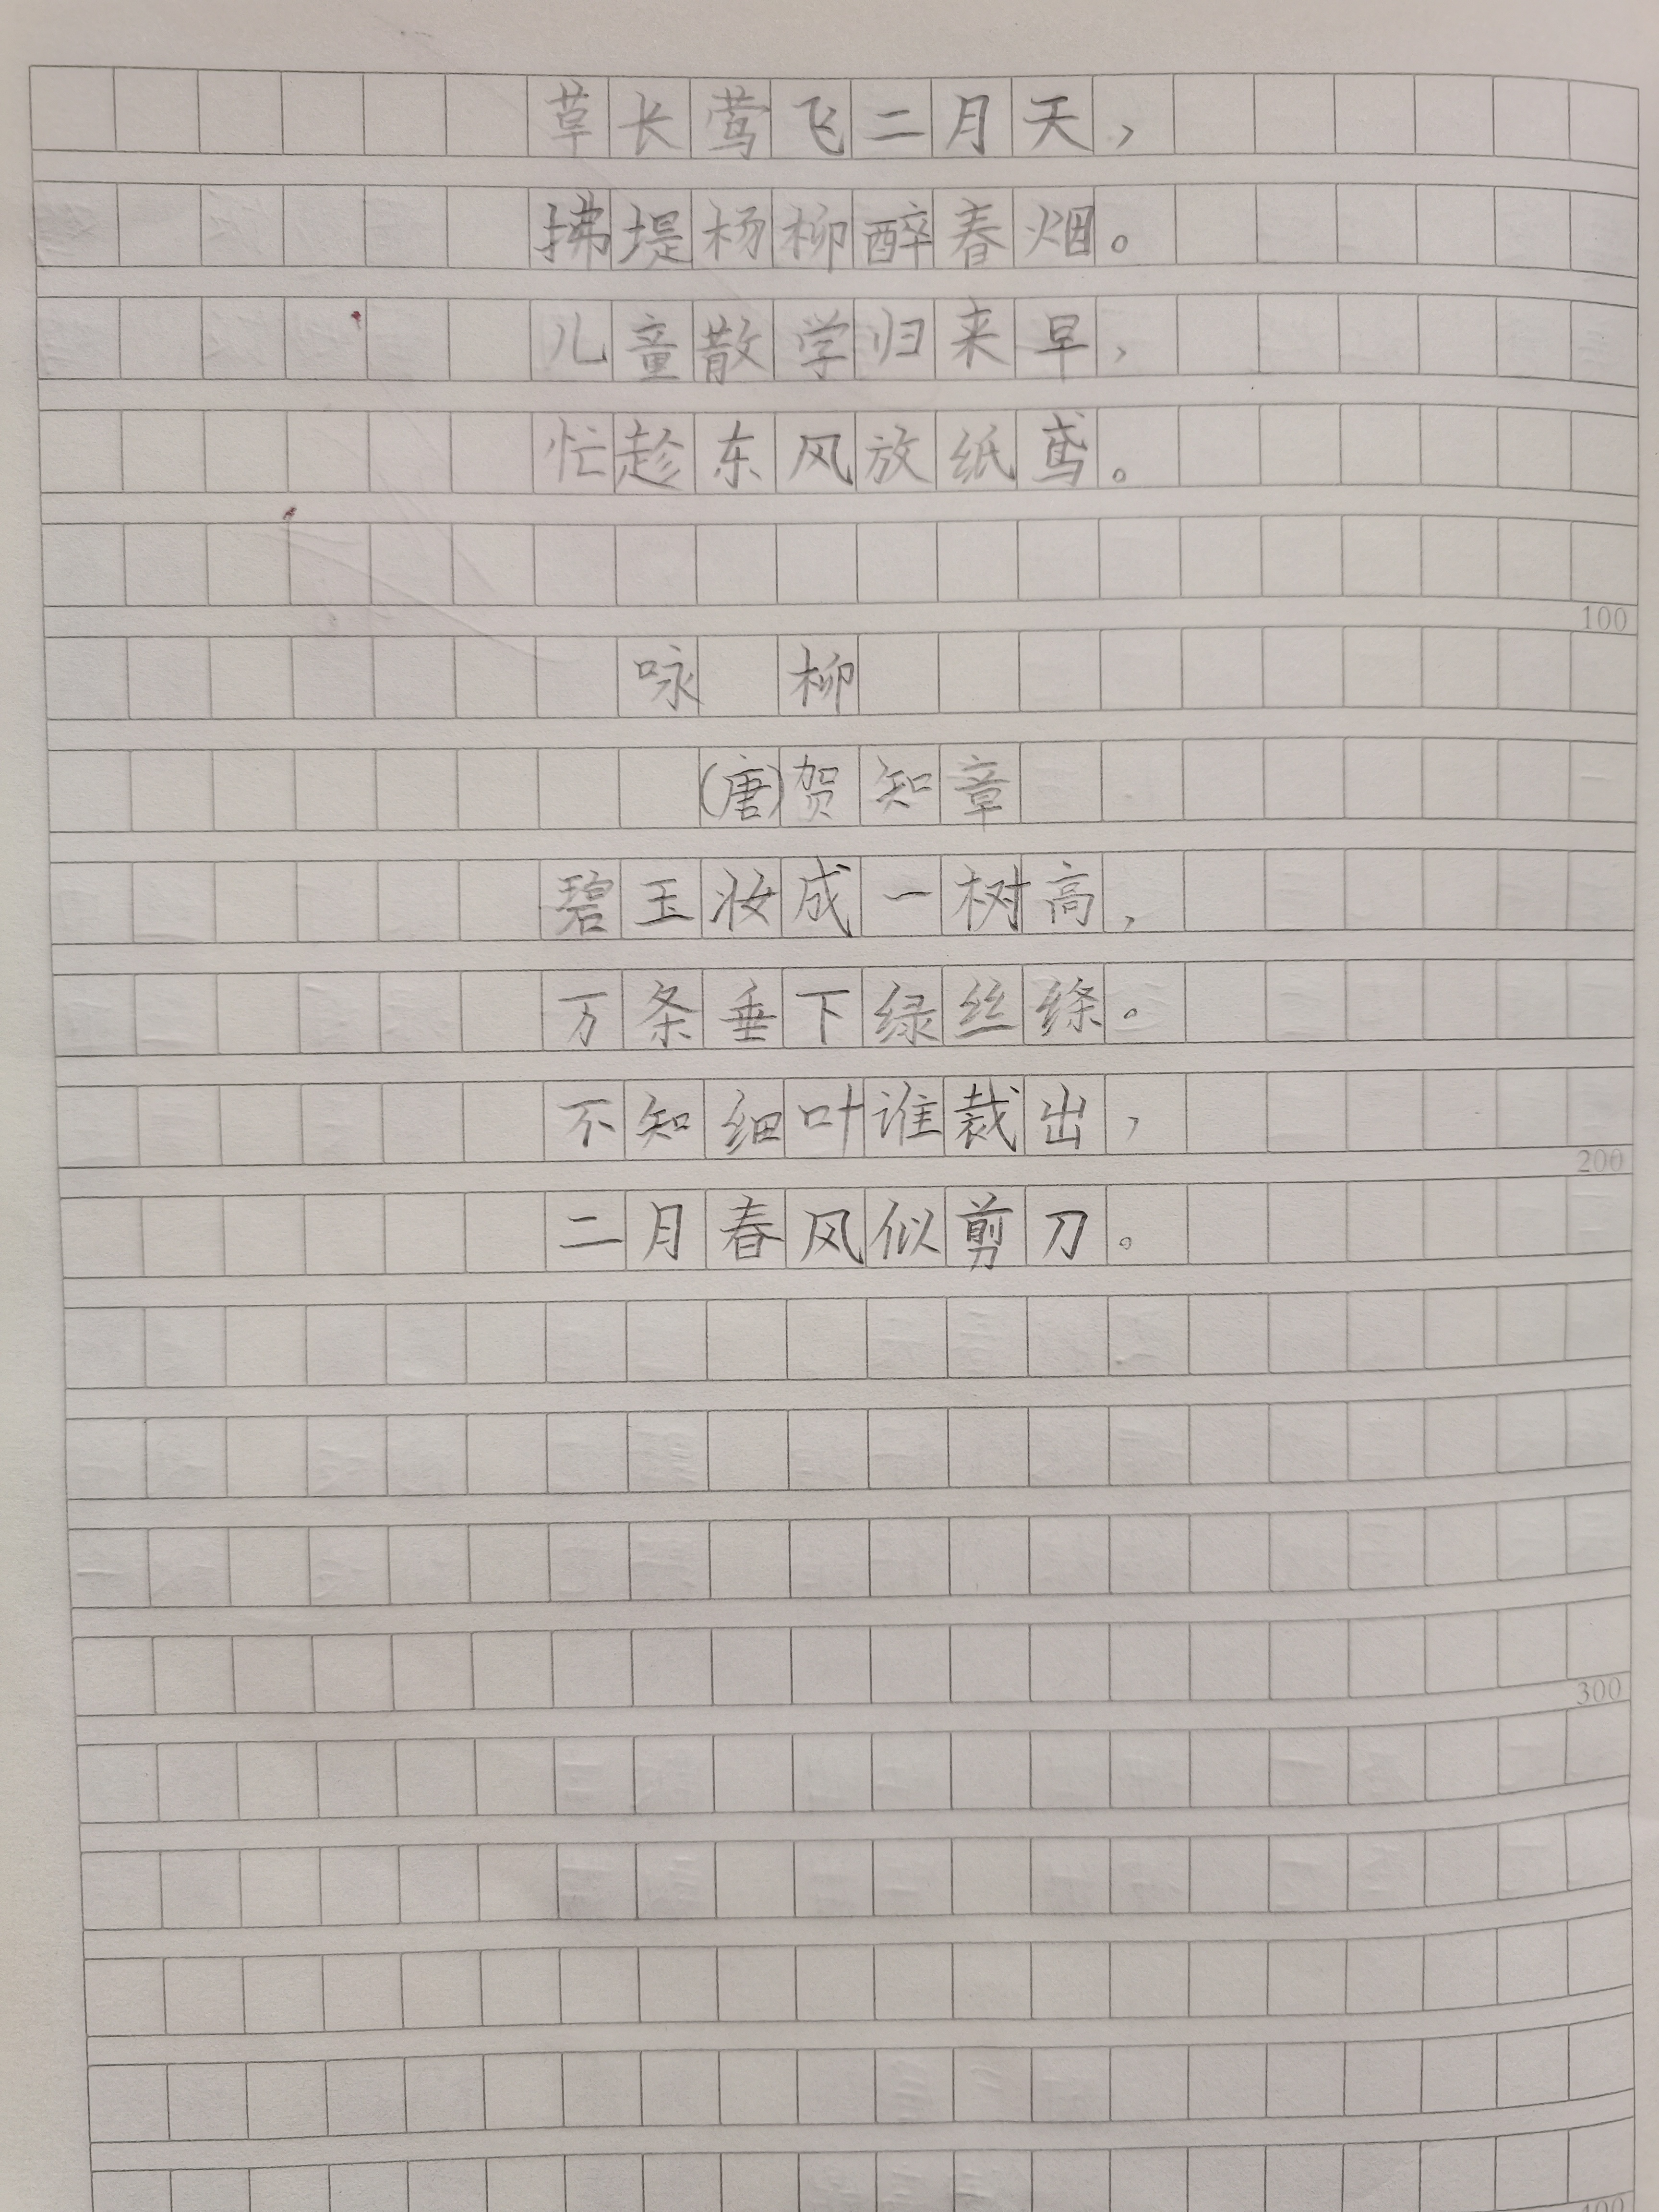 草长莺飞二月天，
拂堤杨柳醉春烟。
儿童散学归来早，
忙趁东风放纸鸢。
100
咏 柳
(唐)贺知章
碧玉妆成一树高，
万条垂下绿丝绦。
不知细叶谁裁出，
200
二月春风似剪刀。
300
400